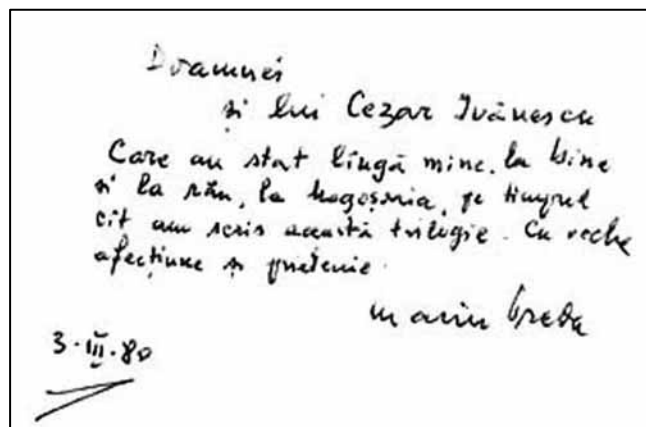 Doamnei
și lui Cezar Ivănescu
Care au stat lîngă mine, la bine
și la rău, la Mogoșoaia, pe timpul
cît am scris această trilogie. Cu veche
afecțiune și prietenie.
Marin Preda
3.III.80